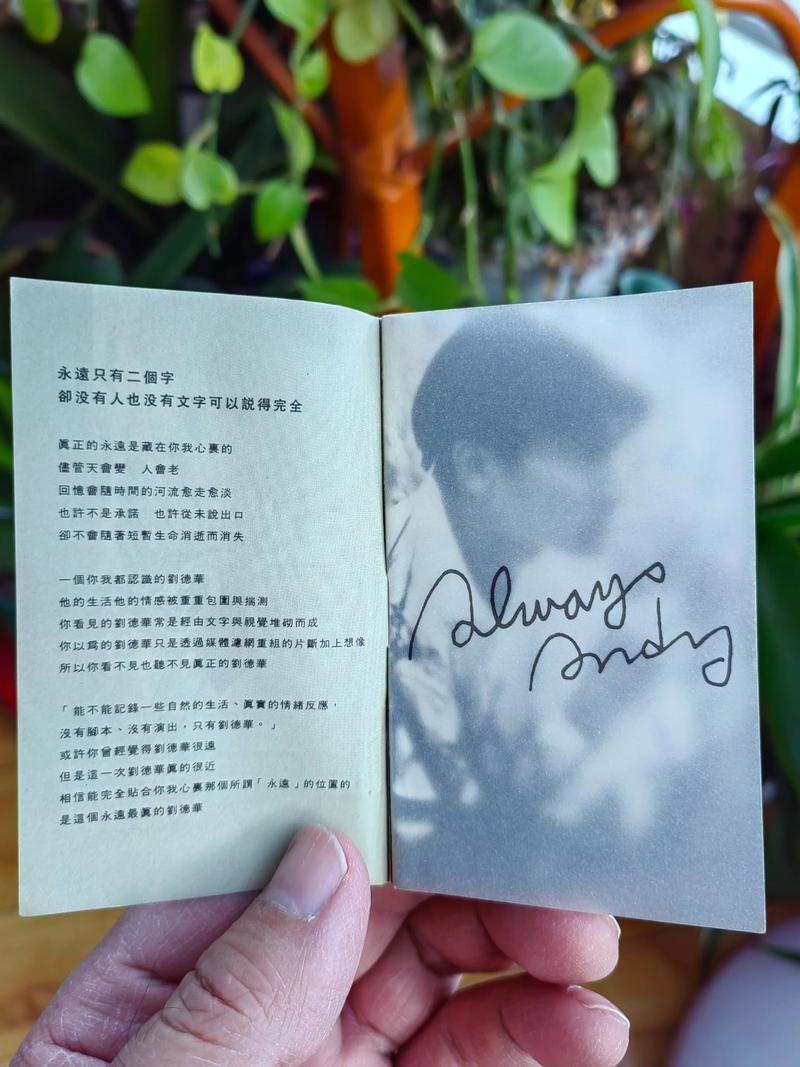 永遠只有二個字
卻没有人也没有文字可以説得完全
眞正的永遠是藏在你我心裏的
儘管天會變　人會老
回憶會隨時間的河流愈走愈淡
也許不是承諾　也許從未說出口
卻不會隨著短暫生命消逝而消失
一個你我都認識的劉德華
他的生活他的情感被重重包圍與揣測
你看見的劉德華常是經由文字與視覺堆砌而成
你以爲的劉德華只是透過媒體濾網重組的片斷加上想像
所以你看不見也聽不見眞正的劉德華
「能不能記錄一些自然的生活、眞實的情緒反應，
沒有腳本、沒有演出，只有劉德華。」
或許你曾經覺得劉德華很遠
但是這一次劉德華眞的很近
相信能完全貼合你我心裏那個所謂「永遠」的位置的
是這個永遠最眞的劉德華
always
andy